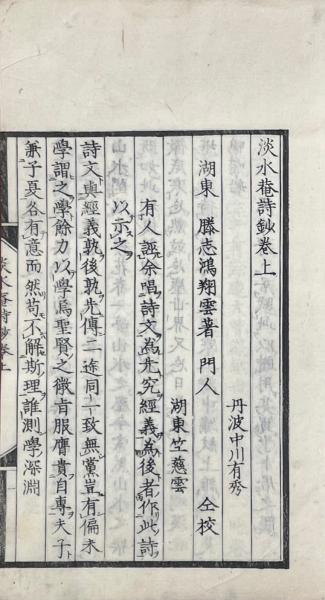 淡水菴詩鈔卷上
丹波中川有秀
湖東 滕志鴻翔雲著 門人 仝校
湖東竺慈雲
有人誣余唱詩文為先究經義為後者作此詩
以示之
詩文與經義孰後孰先傳二途同一致無黨豈有偏未
學謂之學餘力以學焉聖賢之微旨服膺貴自專夫子
兼子夏各有意而然苟不解斯理誰測學深淵
淡水菴詩鈔卷上